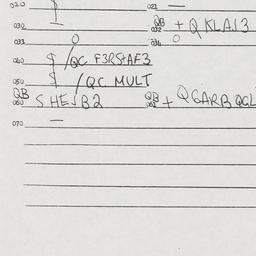 020 021
030 QB 032 + QKLA13
033 034
040 /QC F3RStAF3
050 /QC MULT
QB 060 SHEJB2 QB 061 + QGARB QGL
070